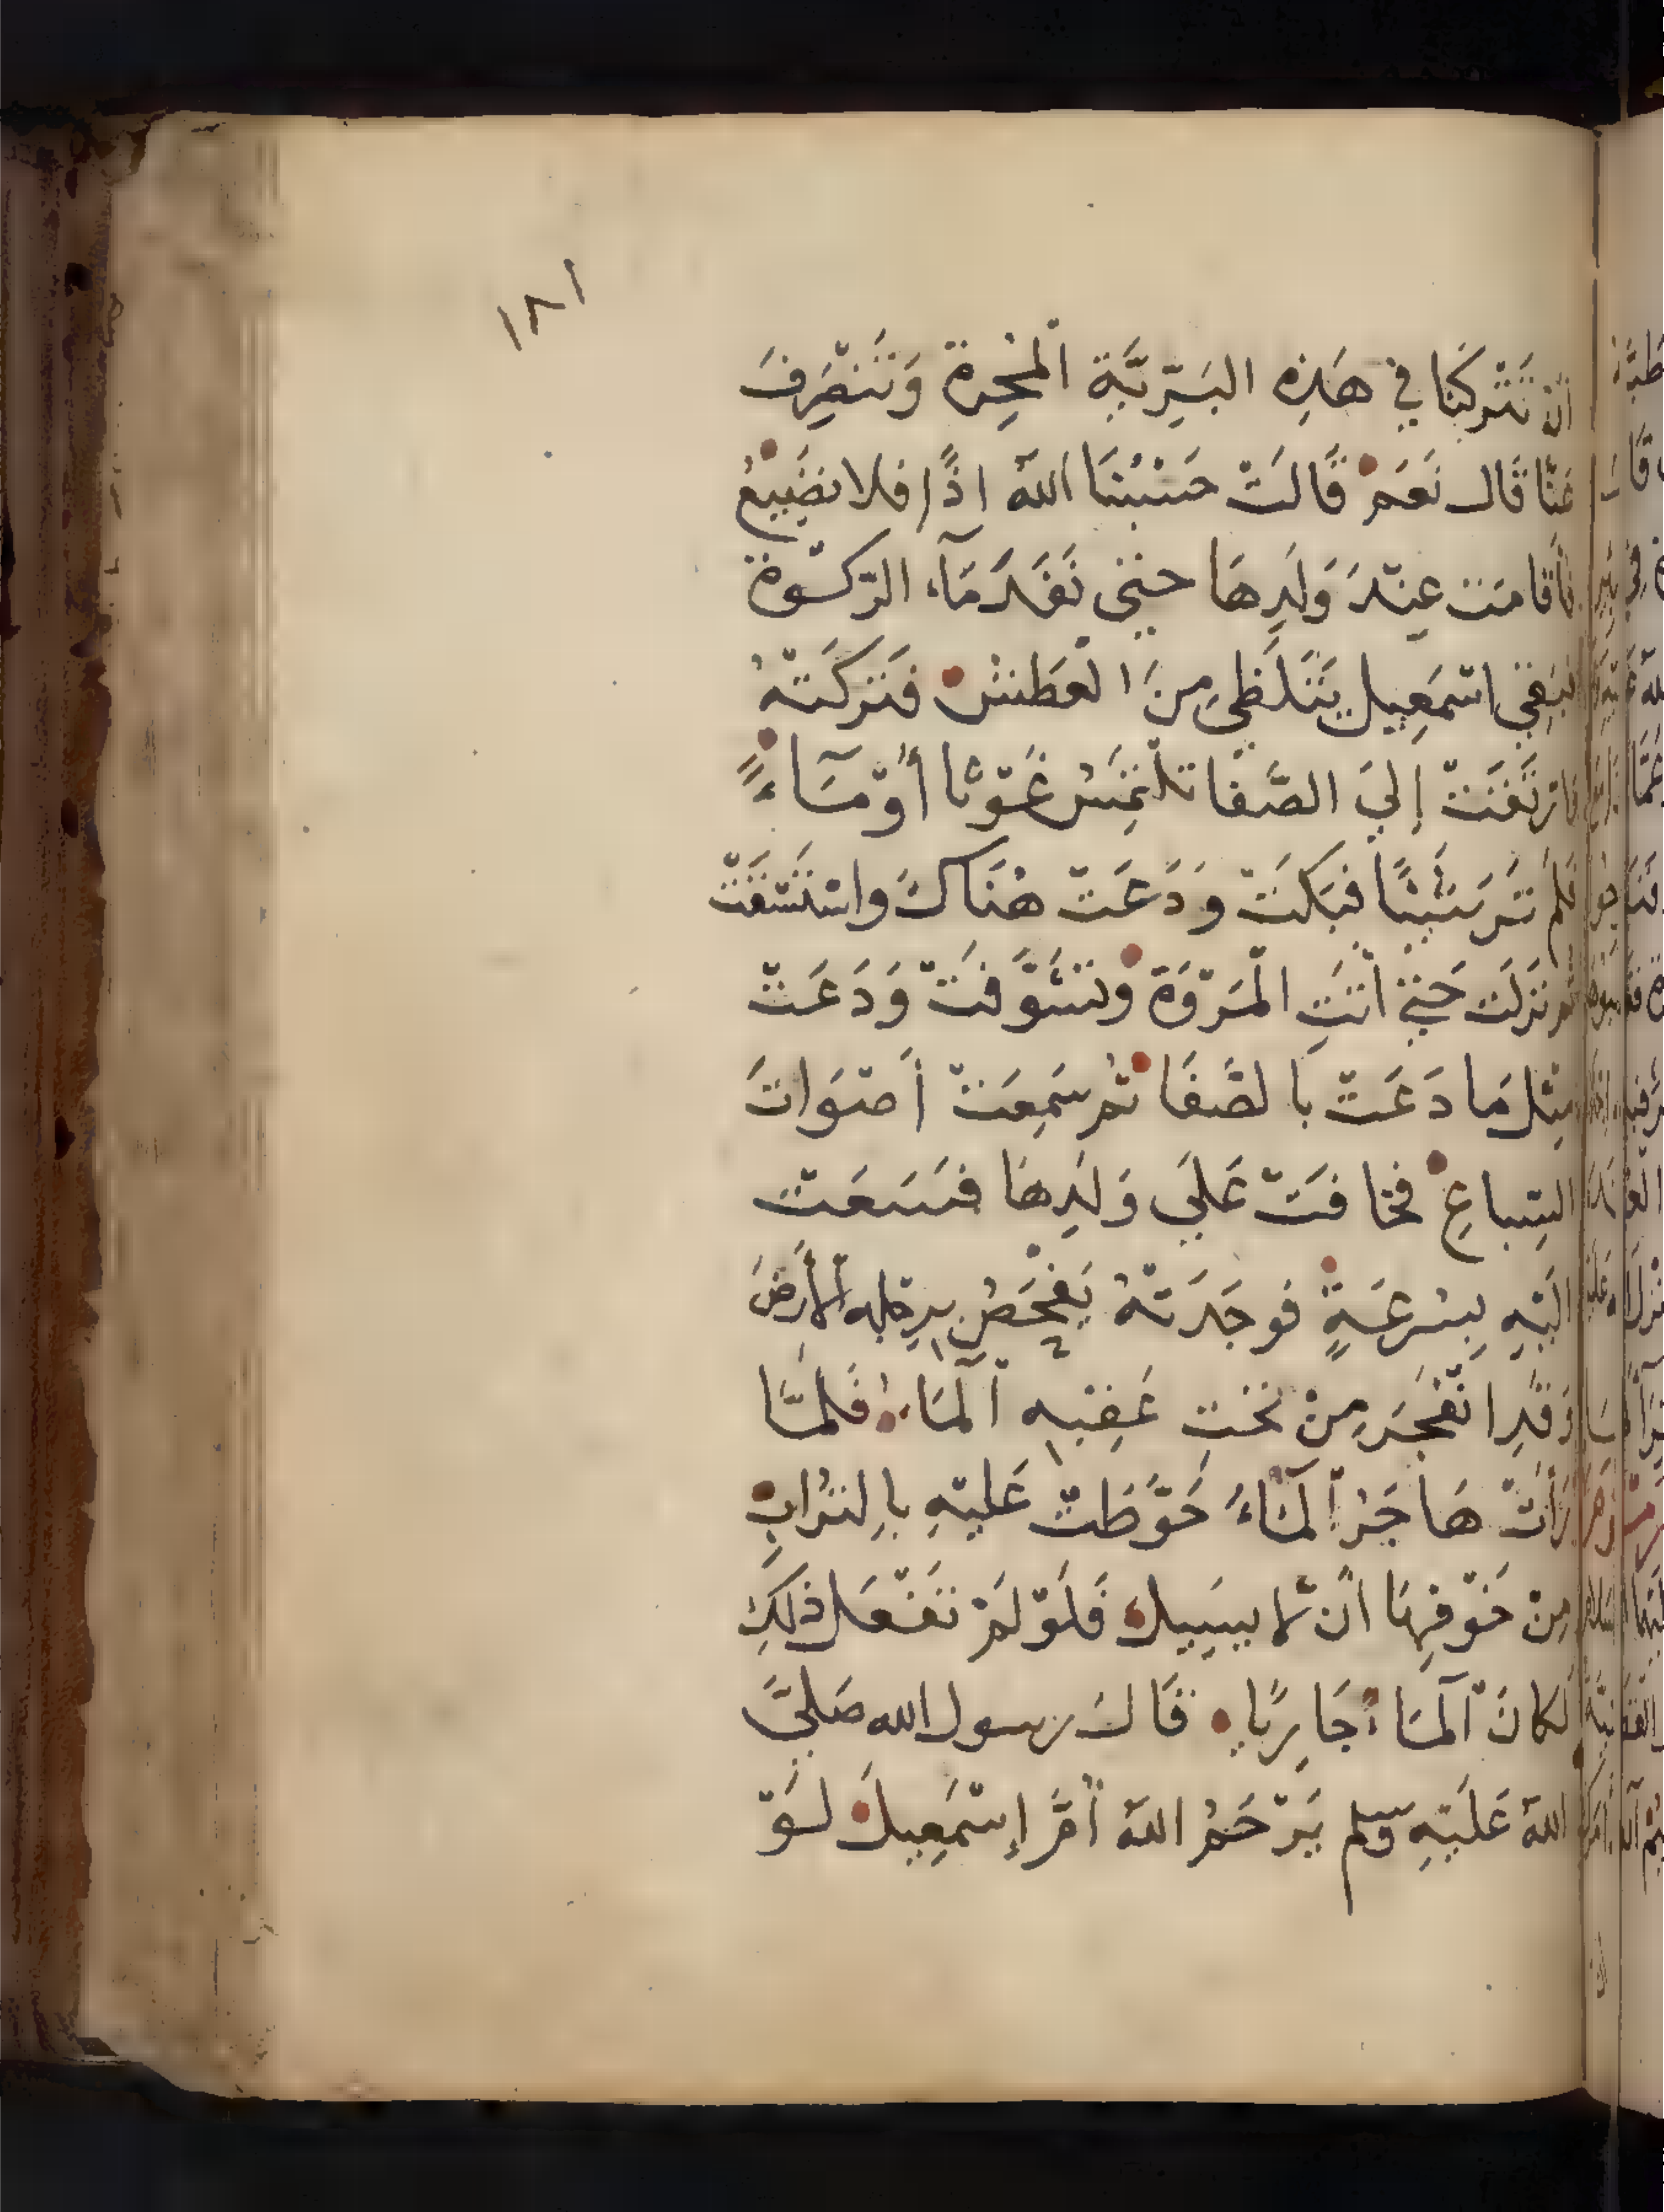 ١٨١
أَنْ تَتْرُكَنَا فِي هَذِهِ البَرِّيَّةِ الْمُحِرة وَتَنْصَرِفَ
عَنَّا قَالَ نَعَمْ قَالَتْ حَسْبُنَا اللهُ اذًا فلا نضَيِيعُ
فأقامَت عِنْدَ وَلَدِهَا حتى نَفَدَ مَآءُ الرّكْوة
فبَقِيَ اسْمَعِيل يَتَلَظَّى مِنَ العَطَش فَتَركَتْهُ
فارتَفَعَتْ إِلَى الصَّفَا تلْتَمِسُ غَوْثًا أَوْ مَآءً
فَلَم تَر شَيْئًا فبَكَتْ وَدَعَتْ هُنَاكَ واسْتَسْقَتْ
ثم نَزَلَت حَتَّى أَتَتِ الْمَرْوَةَ وتَشَوَّفَتْ وَدَعَتْ
مِثْلَ مَا دَعَتْ بالصَّفَا ثُم سَمِعَتْ أَصْوَاتَ
السِّباعِ فخافَتْ عَلَى وَلَدِهَا فسَعَتْ
الَيْهِ بِسُرعَةٍ فوجَدَتْهُ يَفْحَصُ بِرِجْلِهِ الْأَرضَ
وَقَدِ انْفَجَرَ مِنْ تَحْتِ عَقِبِهِ الْمَآءُ فَلَمَّا
رَأَتْ هَاجَرُ الْمَاءَ حَوَّطَتْ عَلَيْهِ بِالتُرَابِ
مِنْ خَوْفِهَا أَنْ لَا يسِيل فَلَوْ لَمْ تَفْعَل ذلِكَ
لَكانَ الْمَآءُ جَارِيًا قَالَ رسول الله صَلَّى
اللهُ عَلَيْهِ وَسلم يَرْحَمُ اللهُ أُمَّ إِسْمَعِيلَ لَوْ